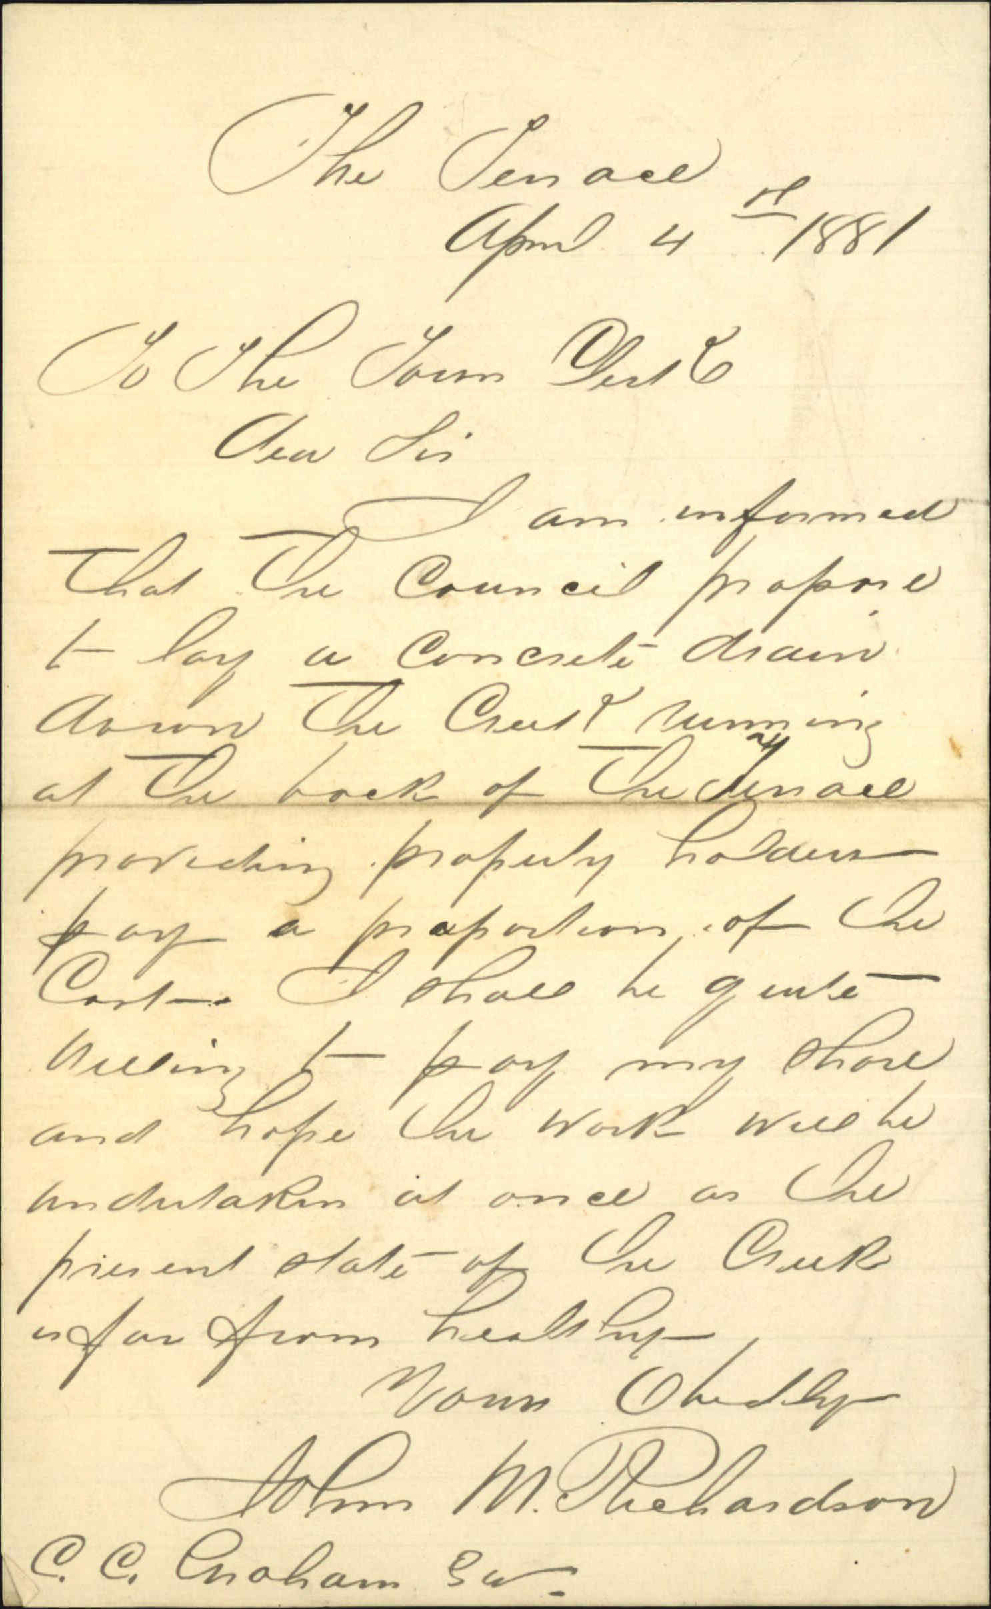 The Terrace
April 4th 1881
To The Town Clerk
Dear Sir
I am informed
that the Council propose
to lay a concrete drain
down the Creek running
at the back of the my Terrace
providing property holders
pay a proportion of the
Cost. I shall be quite
willing to pay my share
and hope the work will be
undertaken at once as the
present state of the Creek
is far from healthy
Yours Obedtly
John M. Richardson
C. C. Graham Esq.